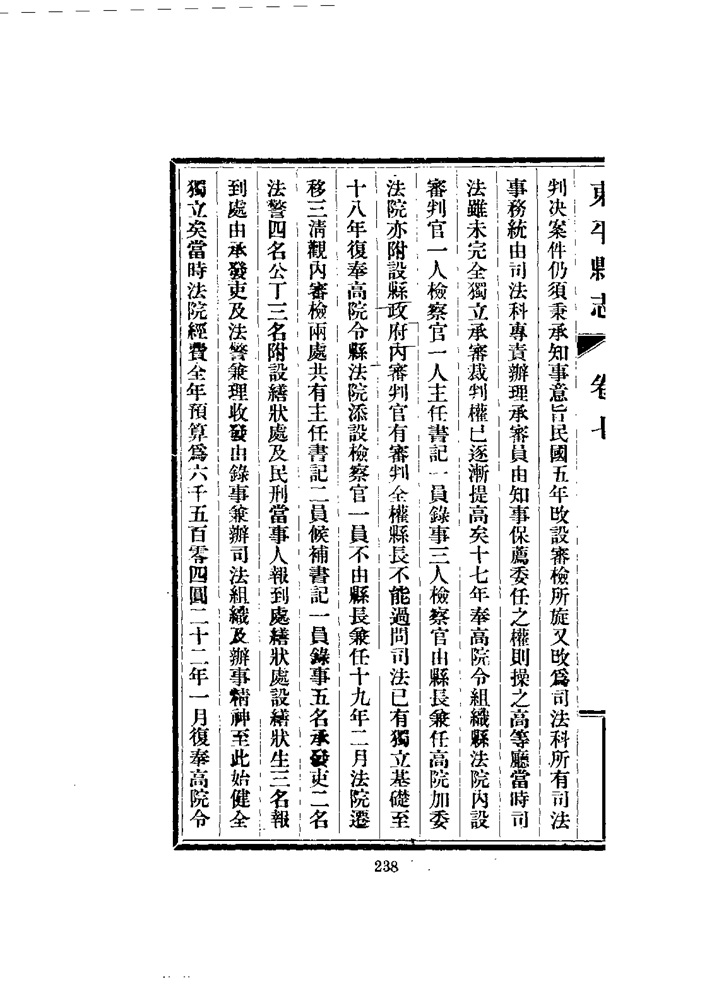 東平縣志 卷七
判决案件仍須秉承知事意旨民國五年改設審檢所旋又改爲司法科所有司法
事務統由司法科專責辦理承審員由知事保薦委任之權則操之高等廳當時司
法雖未完全獨立承審裁判權已逐漸提高矣十七年奉高院令組織縣法院內設
審判官一人檢察官一人主任書記一員錄事三人檢察官由縣長兼任高院加委
法院亦附設縣政府內審判官有審判全權縣長不能過問司法已有獨立基礎至
十八年復奉高院令縣法院添設檢察官一員不由縣長兼任十九年二月法院遷
移三清觀內審檢兩處共有主任書記二員候補書記一員錄事五名承發吏二名
法警四名公丁三名附設繕狀處及民刑當事人報到處繕狀處設繕狀生三名報
到處由承發吏及法警兼理收發由錄事兼辦司法組織及辦事精神至此始健全
獨立矣當時法院經費全年預算爲六千五百零四圓二十二年一月復奉高院令
238